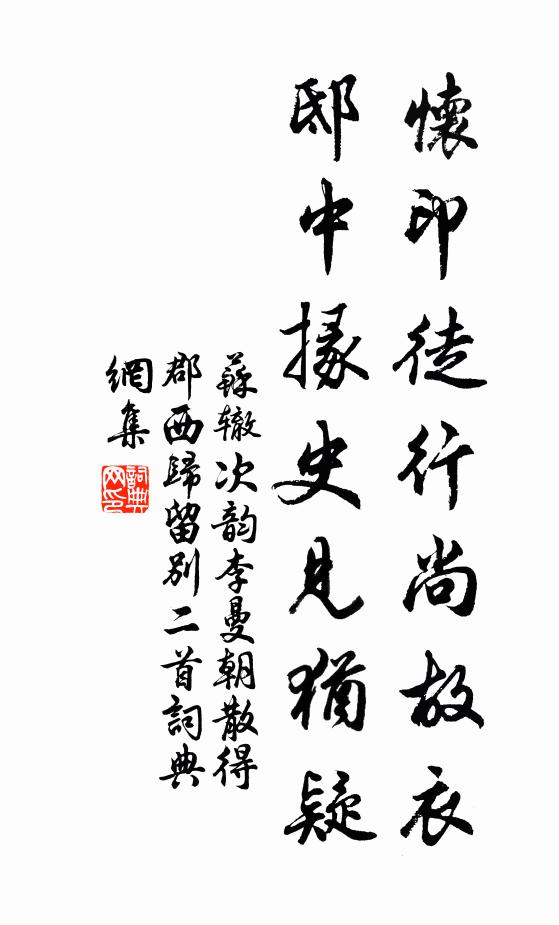 懷印徒行尚故衣
邸中掾史見猶疑
蘇轍次韵李曼朝散得
郡西歸留別二首詞典
網集
詞典
网印